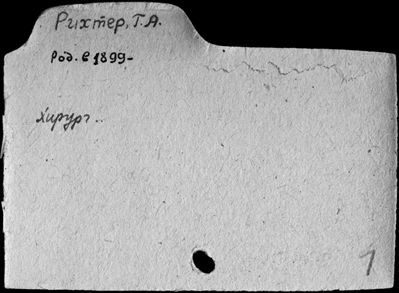 Рихтер, Г.А.
Род. в 1899-
Хирург
1